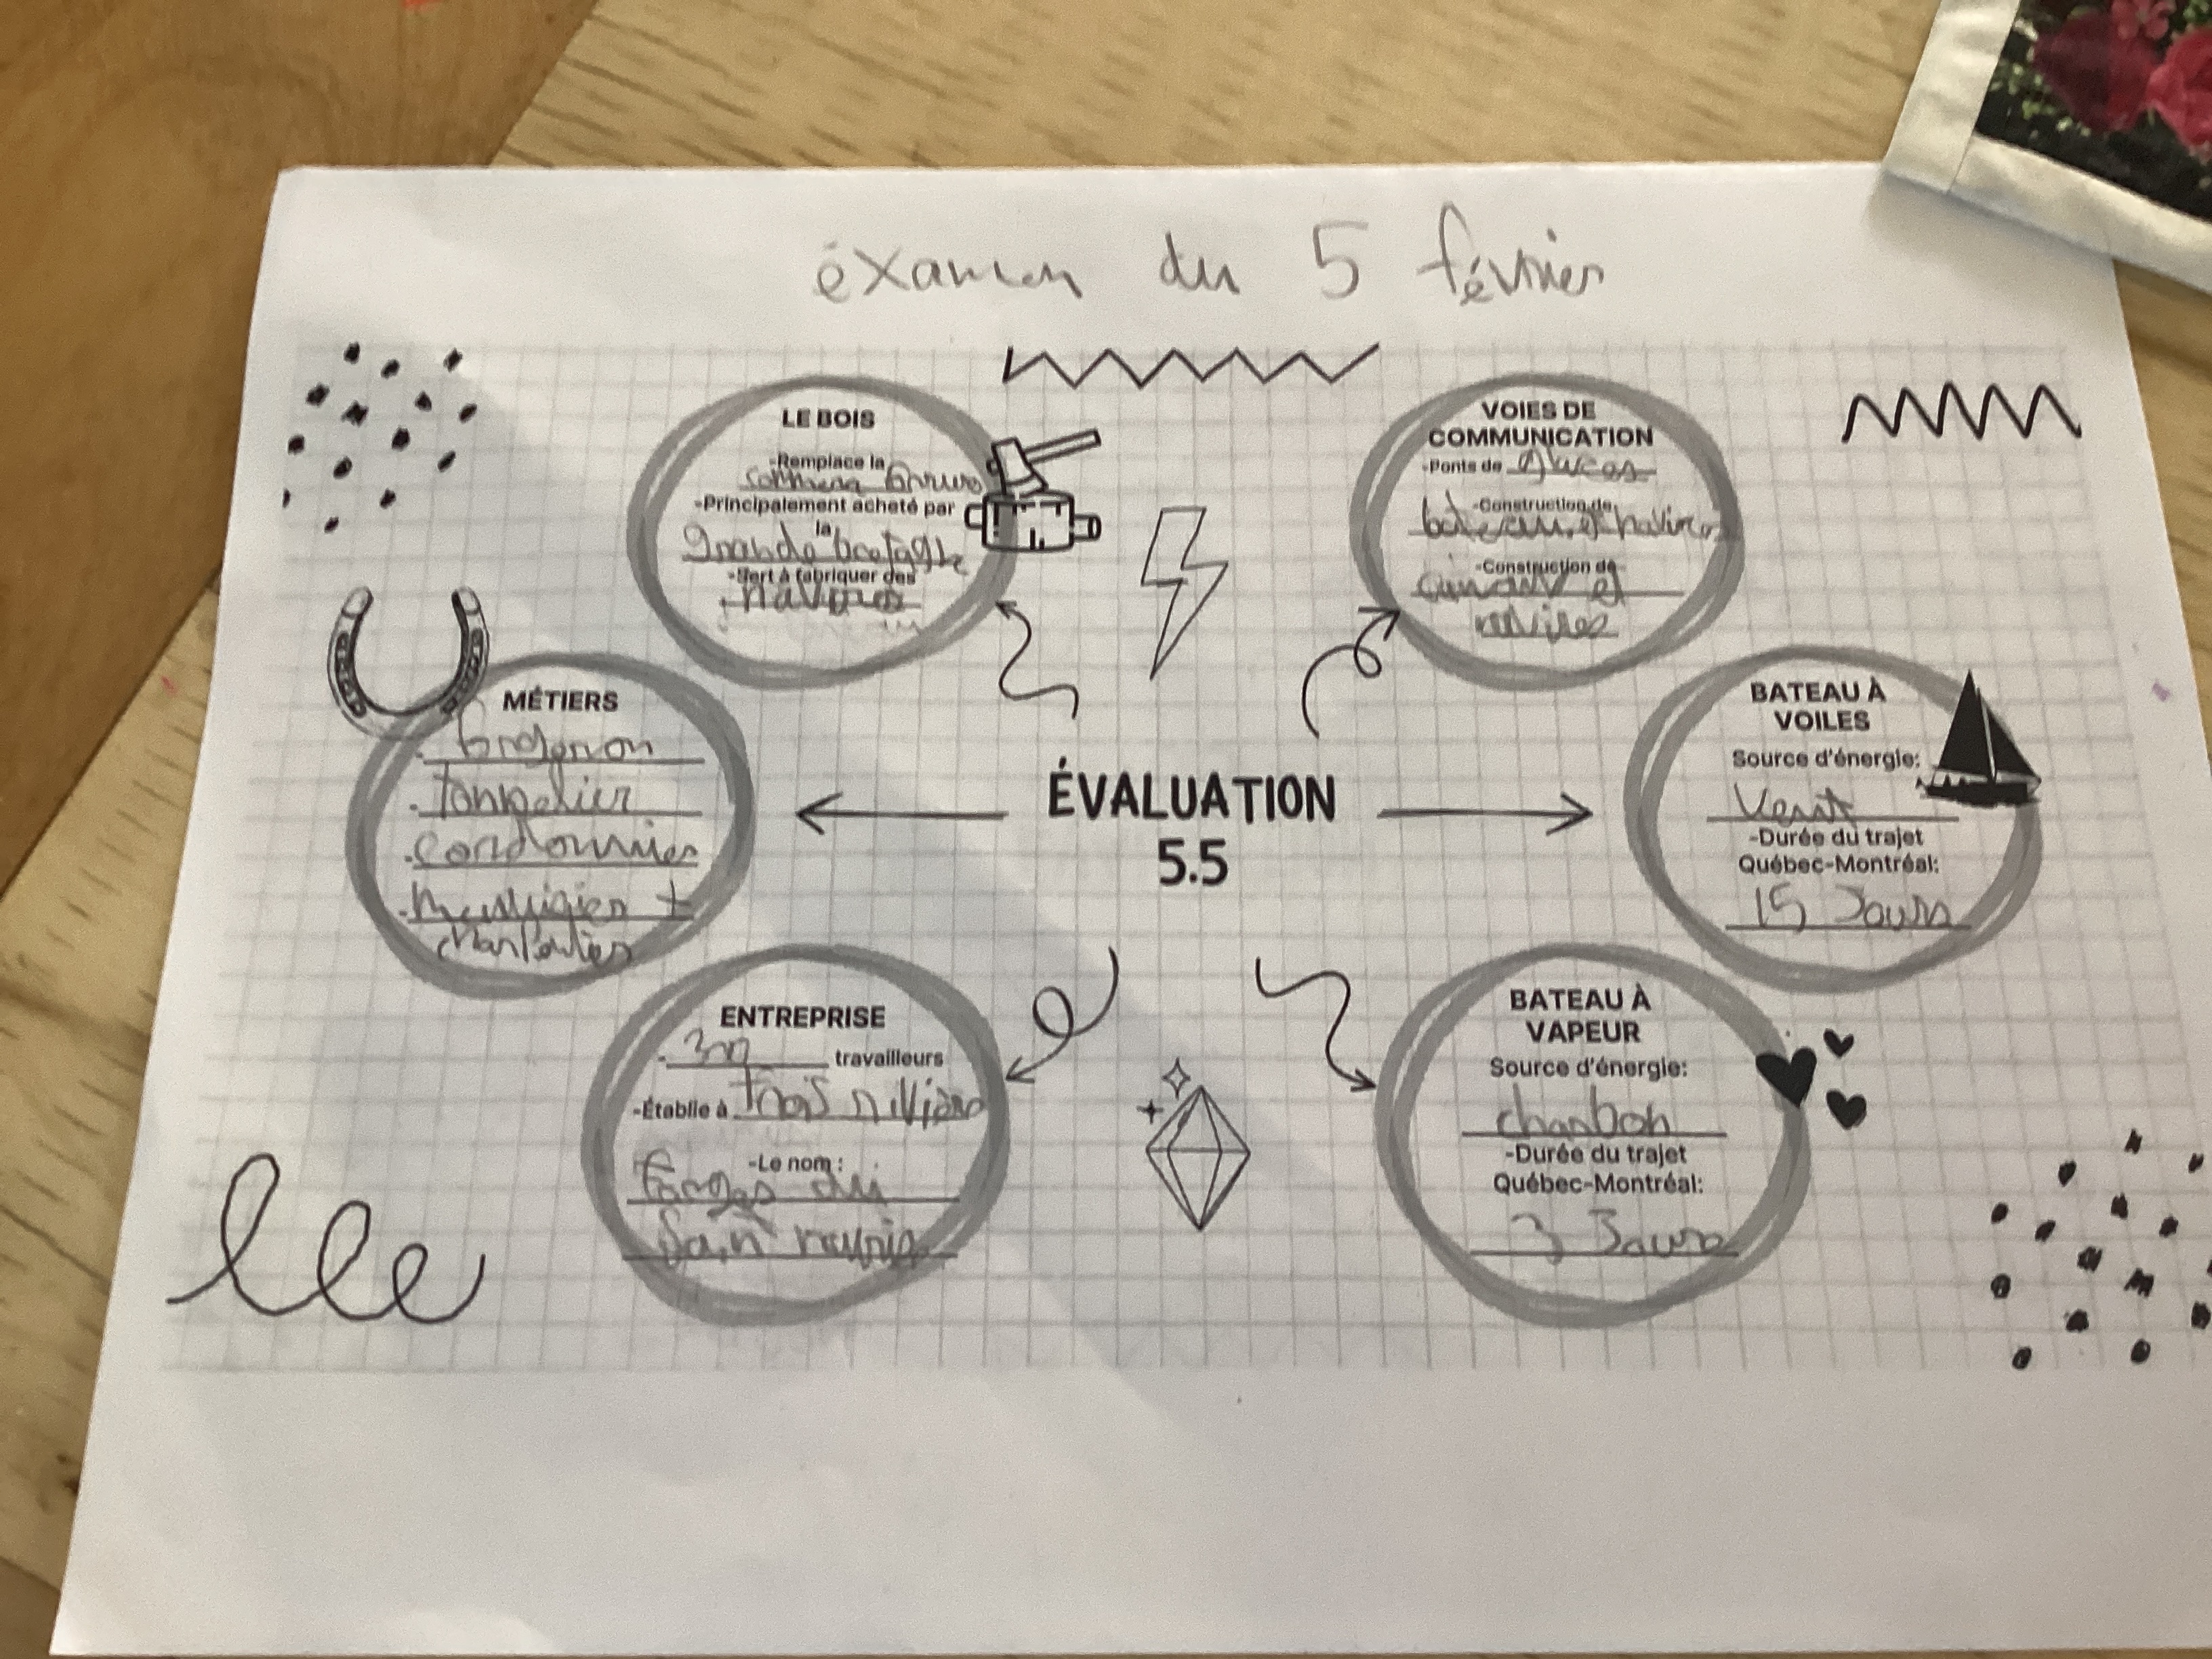 éxamen du 5 février
LE BOIS
-Remplace la
-Principalement acheté par
la
Grande bretagne
-Sert à fabriquer des
navires
VOIES DE
COMMUNICATION
-Ponts de glaces
-Construction de
bateau et navires
-Construction de
et
MÉTIERS
. forgeron
. tonnelier
. cordonnier
charpentier
ÉVALUATION
5.5
BATEAU À
VOILES
Source d'énergie:
Vent
-Durée du trajet
Québec-Montréal:
15 Jours
ENTREPRISE
- travailleurs
-Établie à trois rivière
-Le nom :
forges du
BATEAU À
VAPEUR
Source d'énergie:
charbon
-Durée du trajet
Québec-Montréal:
3 Jours